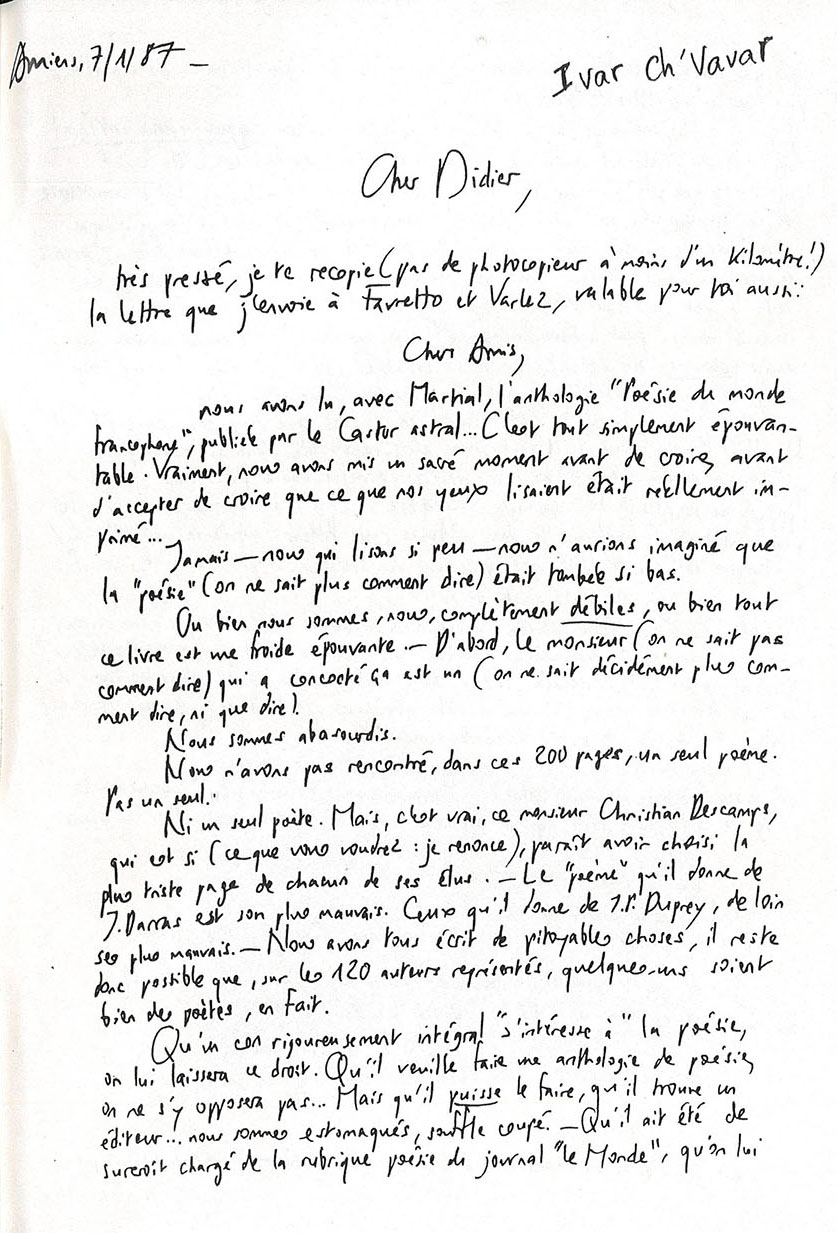 Amiens, 7/1/87 _
Ivar Ch'Vavar
Cher Didier,
très pressé, je te recopie (pas de photocopieur à moins d'un kilomètre!)
la lettre que j'envoie à Favretto et Varlez, valable pour toi aussi:
Chers Amis,
nous avons lu, avec Martial, l'anthologie "Poésie du monde
francophone", publiée par le Castor astral... C'est tout simplement épouvan-
table. Vraiment, nous avons mis un sacré moment avant de croire, avant
d'accepter de croire que ce que nos yeux lisaient était réellement im-
primé...
Jamais — nous qui lisons si peu — nous n'aurions imaginé que
la "poésie" (on ne sait plus comment dire) était tombée si bas.
Ou bien nous sommes, nous, complètement débiles, ou bien tout
ce livre est une froide épouvante. — D'abord, le monsieur (on ne sait pas
comment dire) qui a concocté ça est un (on ne sait décidément plus com-
ment dire, ni que dire).
Nous sommes abasourdis.
Nous n'avons pas rencontré, dans ces 200 pages, un seul poème.
Pas un seul.
Ni un seul poète. Mais, c'est vrai, ce monsieur Christian Descamps,
qui est si (ce que vous voudrez : je renonce), paraît avoir choisi la
plus triste page de chacun de ses élus. — Le "poème" qu'il donne de
J. Darras est son plus mauvais. Ceux qu'il donne de J.P. Duprey, de loin
ses plus mauvais. — Nous avons tous écrit de pitoyables choses, il reste
donc possible que, sur les 120 auteurs représentés, quelques-uns soient
bien des poètes, en fait.
Qu'un con rigoureusement intégral "s'intéresse à" la poésie,
on lui laissera ce droit. Qu'il veuille faire une anthologie de poésie,
on ne s'y opposera pas... Mais qu'il puisse le faire, qu'il trouve un
éditeur... nous sommes estomaqués, souffle coupé. — Qu'il ait été de
surcroît chargé de la rubrique poésie du journal "le Monde", qu'on lui